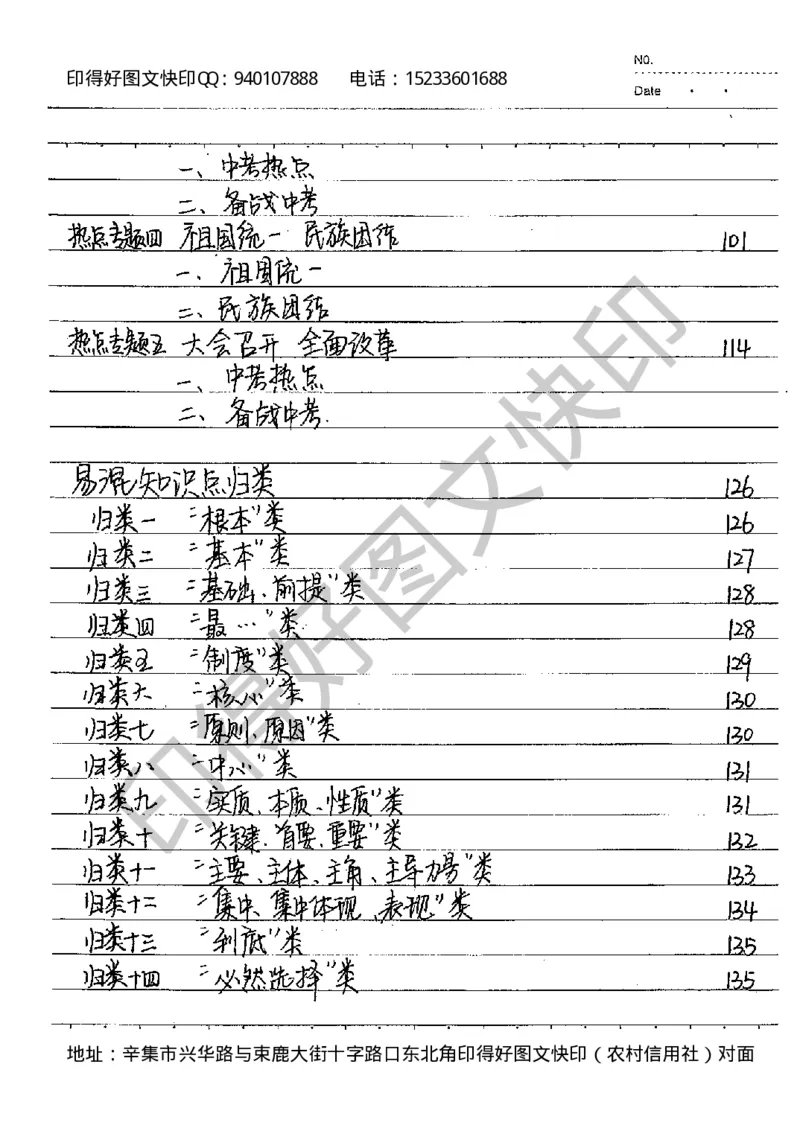 印得好图文快印QQ：940107888 电话：15233601688
NO.
Date
一、中考热点
二、备战中考
热点专题四 祖国统一 民族团结 101
一、祖国统一
二、民族团结
热点专题五 大会召开 全面改革 114
一、中考热点
二、备战中考.
易混知识点归类 126
归类一 “根本”类 126
归类二 “基本”类 127
归类三 “基础、前提”类 128
归类四 “最…”类 128
归类五 “制度”类 129
归类六 “核心”类 130
归类七 “原则、原因”类 130
归类八 “中心”类 131
归类九 “实质、本质、性质”类 131
归类十 “关键、首要、重要”类 132
归类十一 “主要、主体、主角、主导力量”类 133
归类十二 “集中、集中体现、表现”类 134
归类十三 “到底”类 135
归类十四 “必然选择”类 135
印得好图文快印
地址：辛集市兴华路与束鹿大街十字路口东北角印得好图文快印（农村信用社）对面